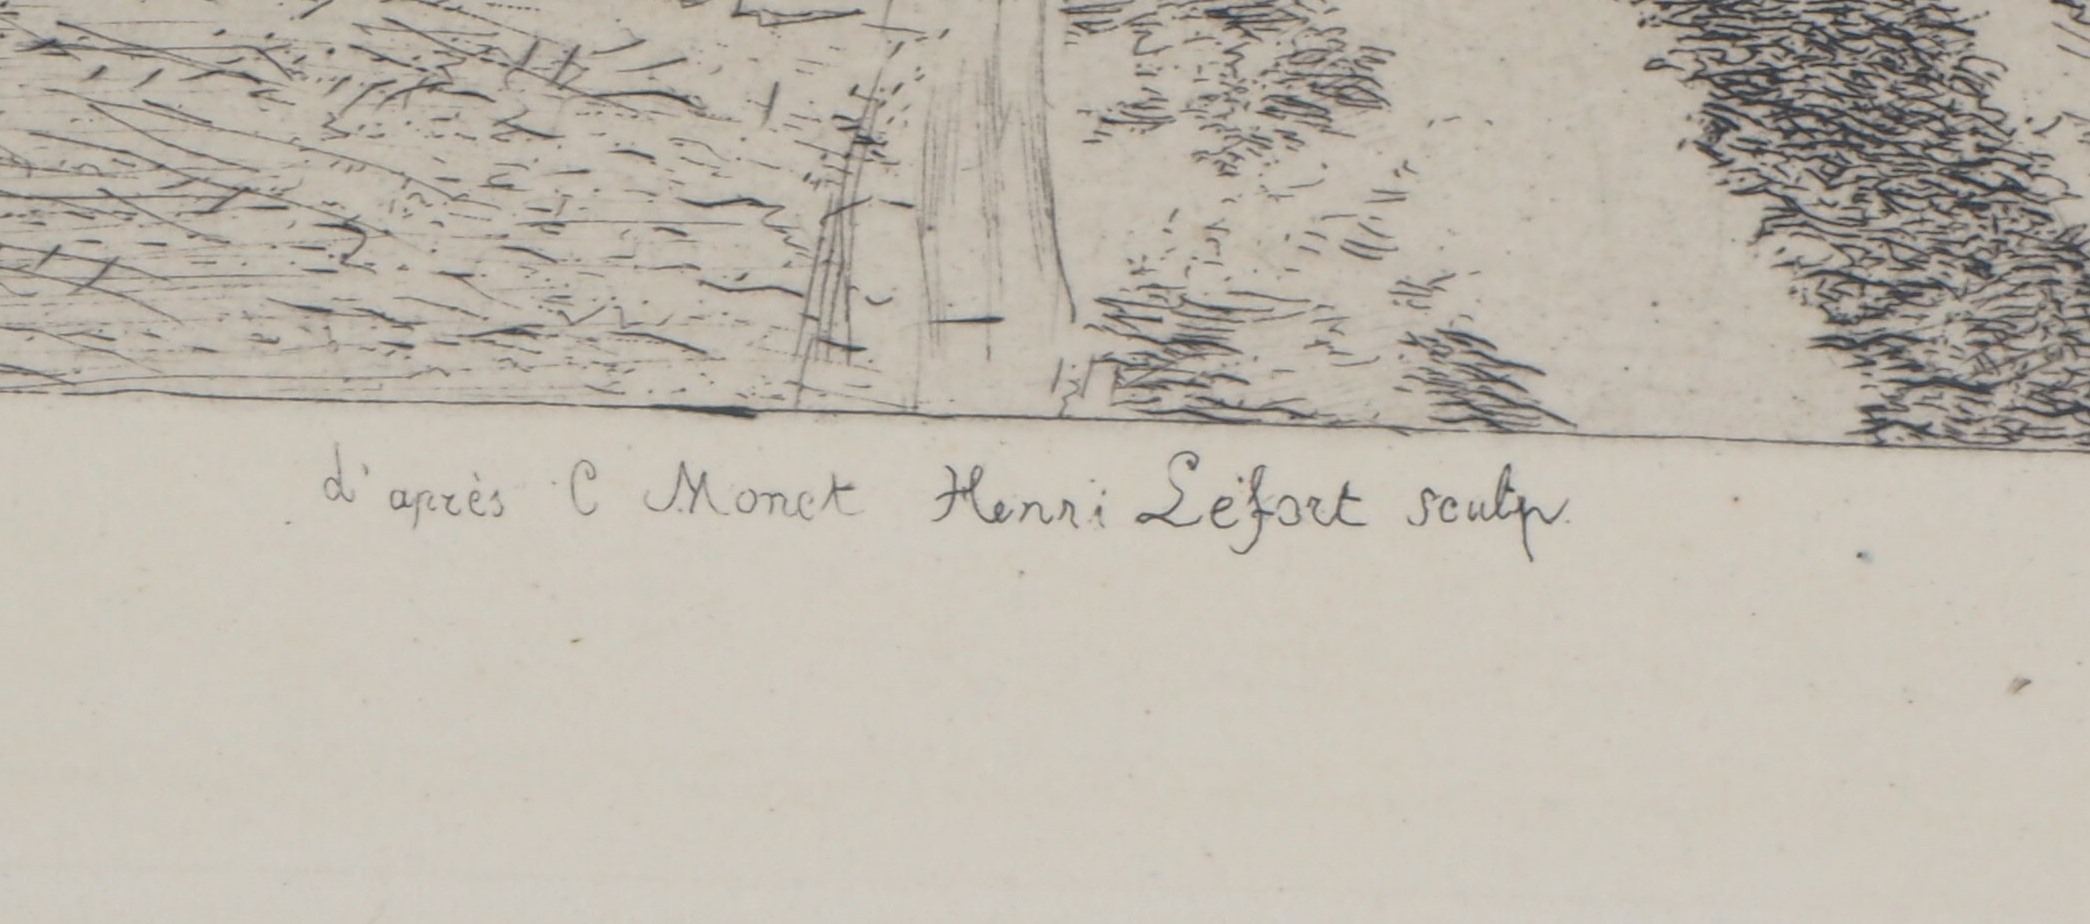 d'après C Monet Henri Lefort sculp.